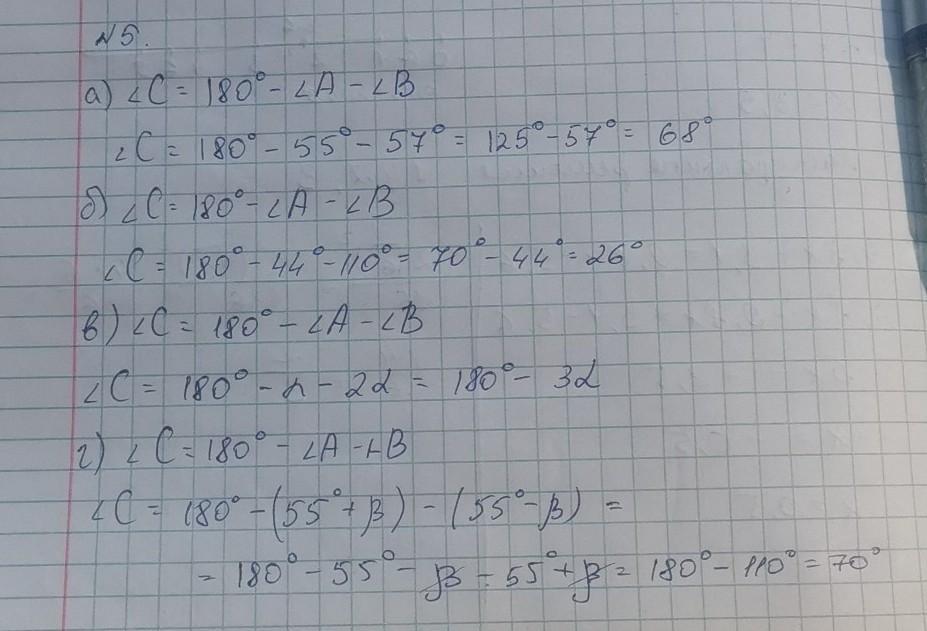 №5.
а) ∠C = 180° - ∠A - ∠B
∠C = 180° - 55° - 57° = 125° - 57° = 68°
б) ∠C = 180° - ∠A - ∠B
∠C = 180° - 44° - 110° = 70° - 44° = 26°
в) ∠C = 180° - ∠A - ∠B
∠C = 180° - α - 2α = 180° - 3α
г) ∠C = 180° - ∠A - ∠B
∠C = 180° - (55° + β) - (55° - β) =
= 180° - 55° - β - 55° + β = 180° - 110° = 70°